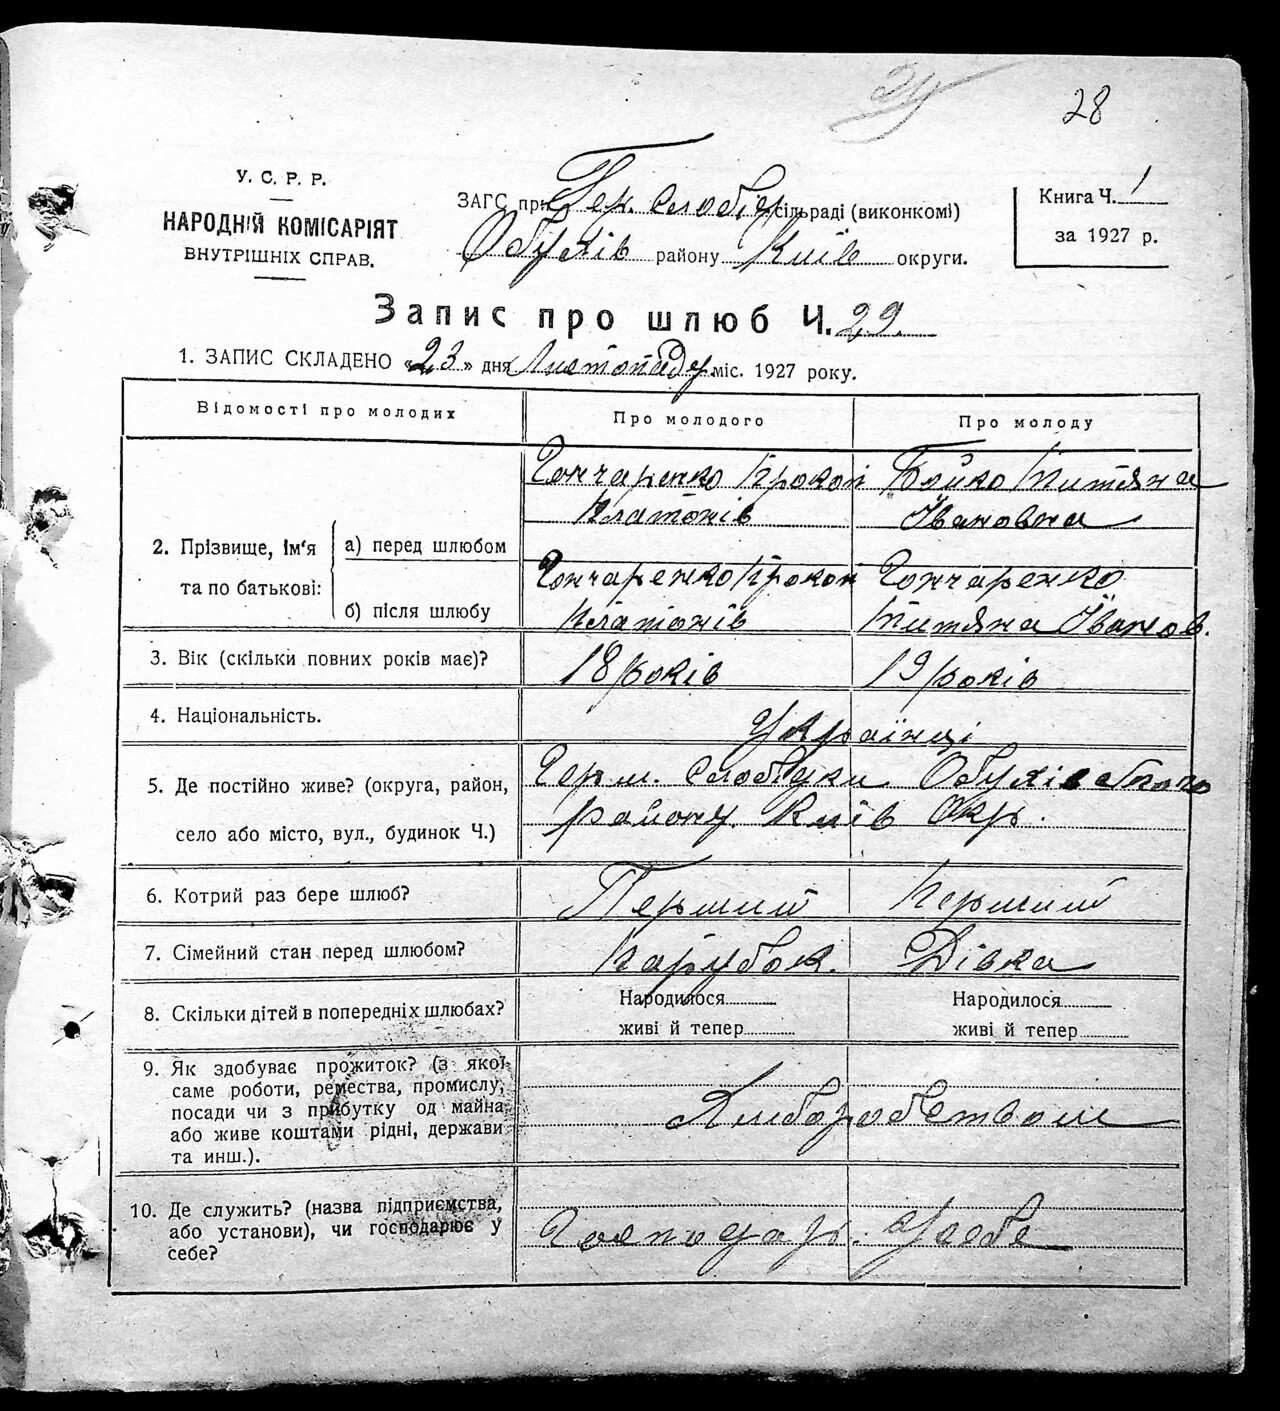 28
У. С. Р. Р.
НАРОДНІЙ КОМІСАРІЯТ
ВНУТРІШНІХ СПРАВ.
ЗАГС при Гер. Слобід сільраді (виконкомі)
Обухів району Київ округи.
Книга Ч. 1
за 1927 р.
Запис про шлюб Ч. 29.
1. ЗАПИС СКЛАДЕНО «23» дня Листопаду міс. 1927 року.
Відомості про молодих Про молодого Про молоду
2. Прізвище, ім'я та по батькові:
а) перед шлюбом
Гончаренко Прокоп Платонів
Бойко Титяна Івановна
б) після шлюбу
Гончаренко Прокоп Платонів
Гончаренко Титяна Іванов.
3. Вік (скільки повних років має)? 18 років 19 років
4. Національність. Українці
5. Де постійно живе? (округа, район, село або місто, вул., будинок Ч.)
Герм. Слобідки Обухівського
району Київ Окр.
6. Котрий раз бере шлюб? Перший Перший
7. Сімейний стан перед шлюбом? Парубок. Дівка
8. Скільки дітей в попередніх шлюбах?
Народилося Народилося
живі й тепер живі й тепер
9. Як здобуває прожиток? (з якої
саме роботи, ремества, промислу,
посади чи з прибутку од майна
або живе коштами рідні, держави
та инш.).
Хліборобством
10. Де служить? (назва підприємства,
або установи), чи господарює у
себе?
Господар. У себе